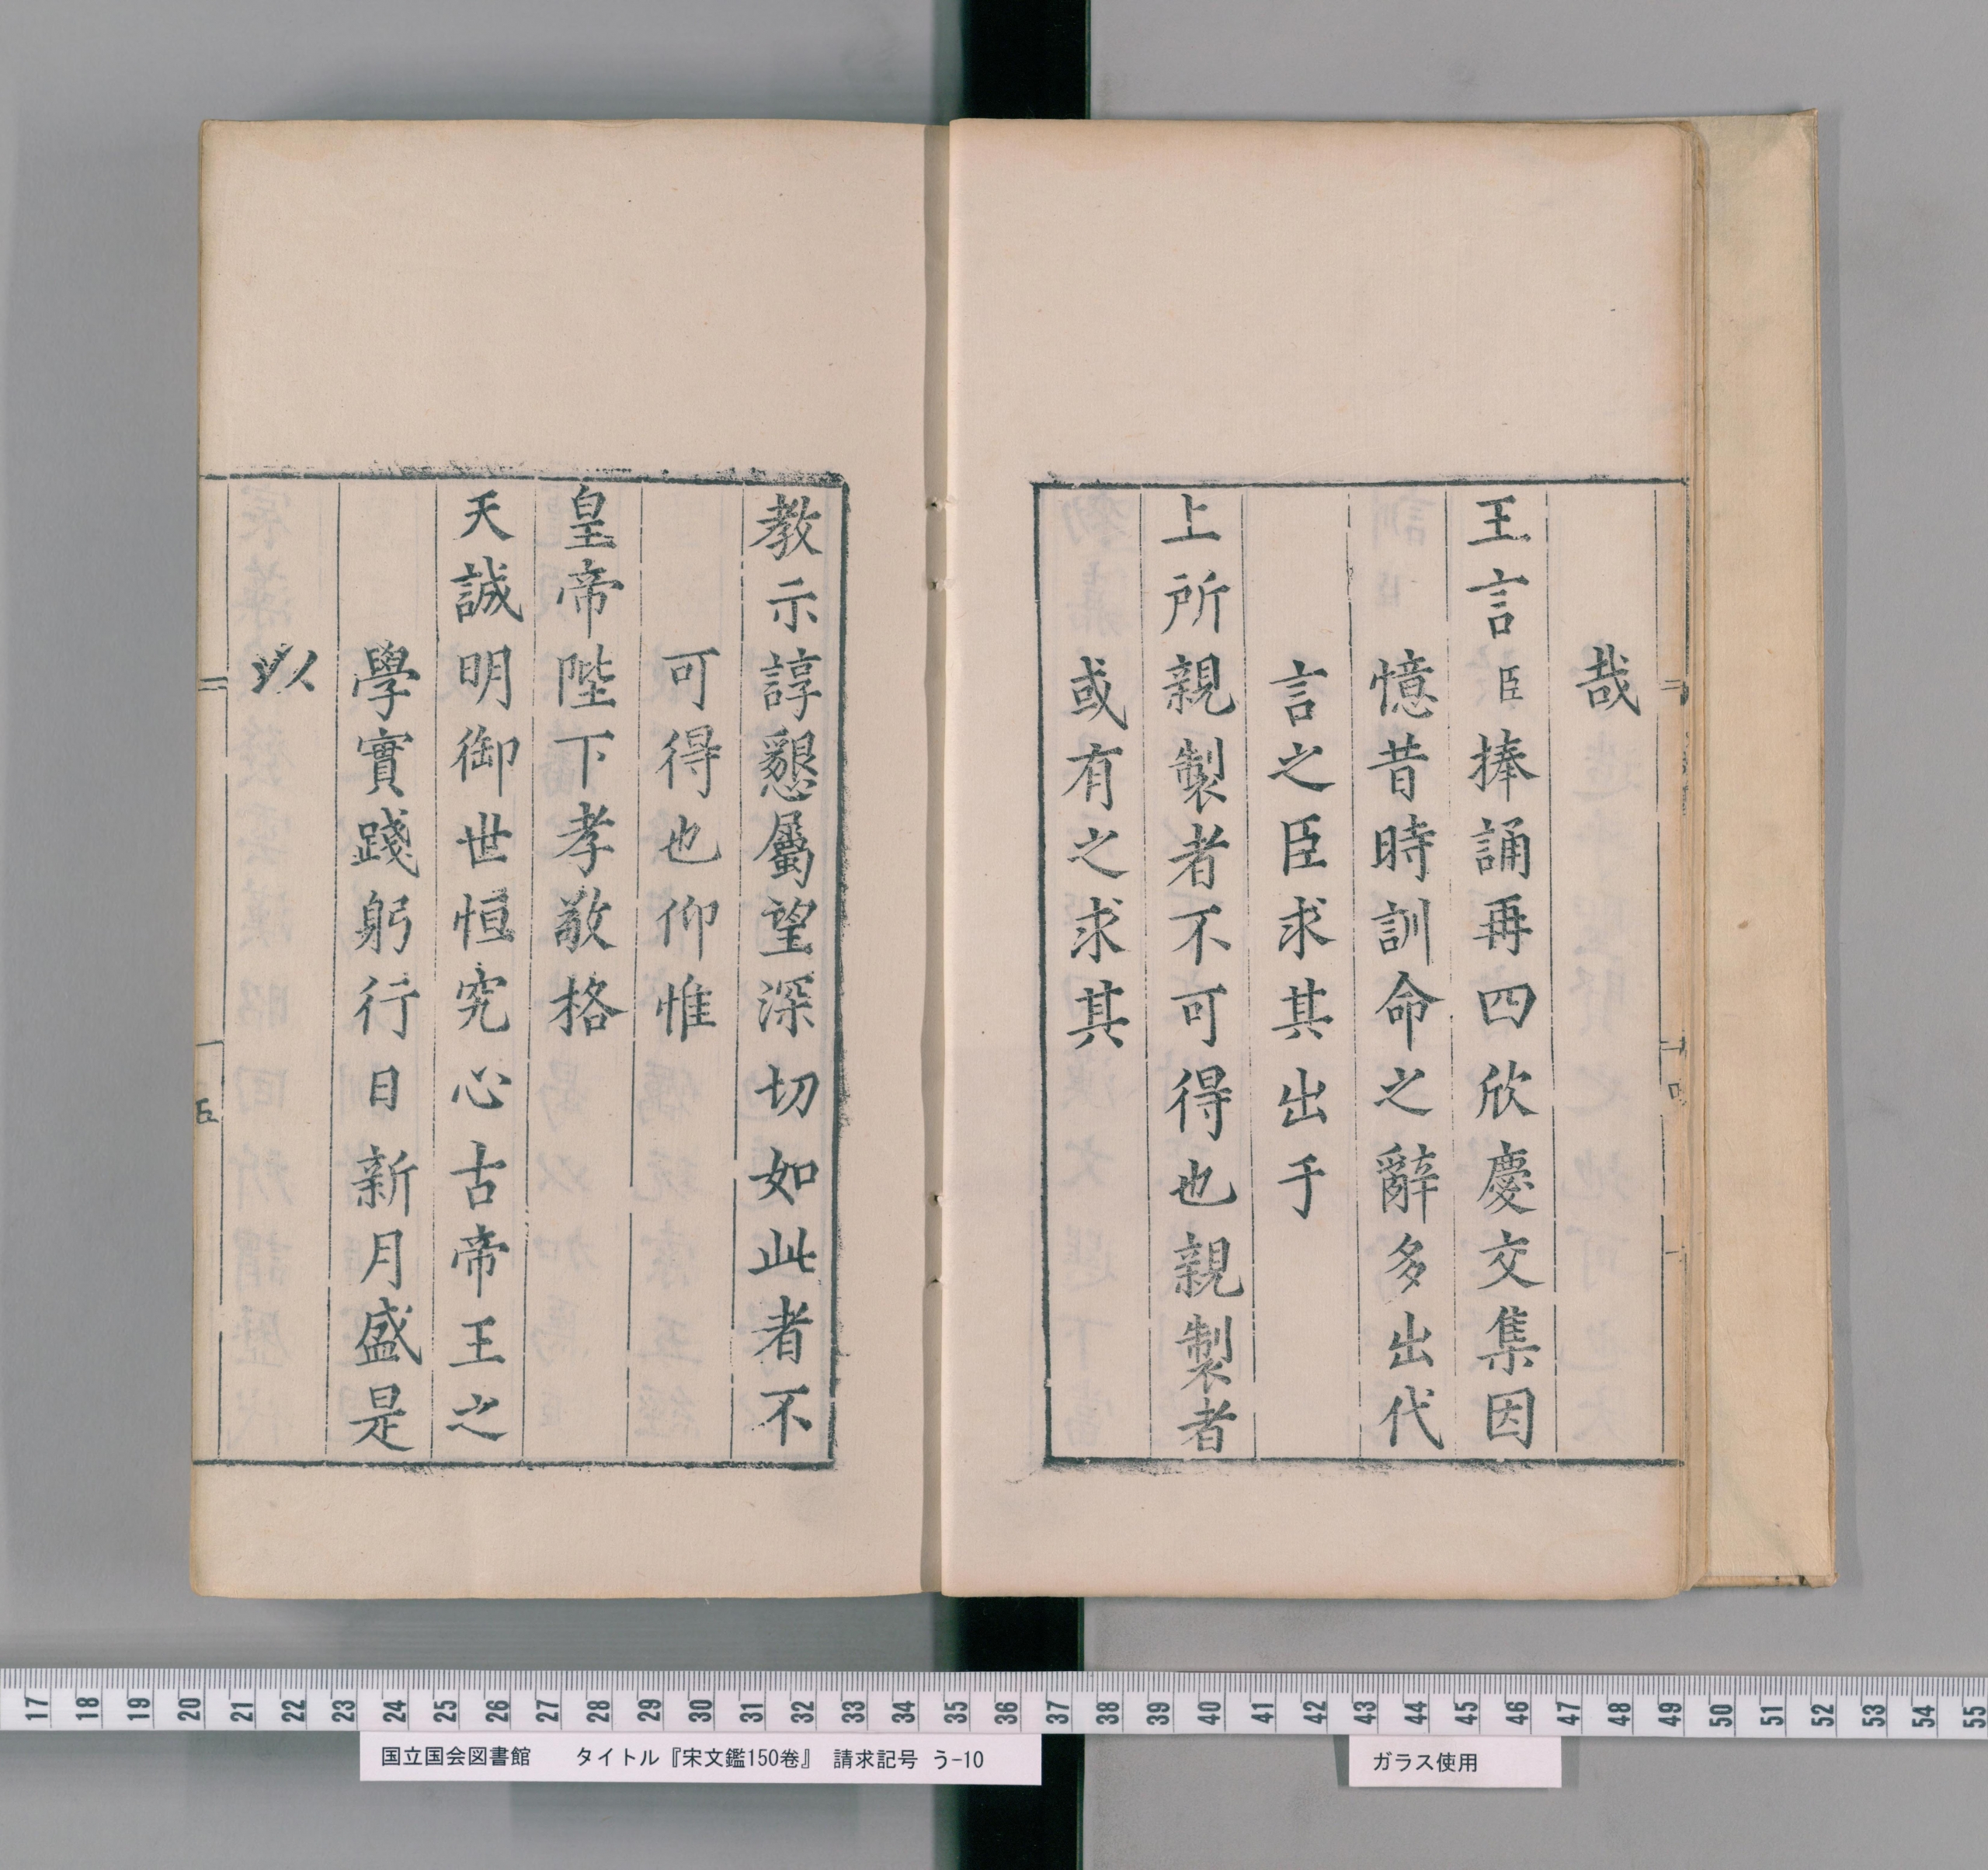 哉
王言臣捧誦再四欣慶交集因
憶昔時訓命之辭多出代
言之臣求其出于
上所親製者不可得也親製者
或有之求其
教示諄懇屬望深切如此者不
可得也仰惟
皇帝陛下孝敬格
天誠明御世恒究心古帝王之
學實踐躬行日新月盛是
以
17 18 19 20 21 22 23 24 25 26 27 28 29 30 31 32 33 34 35 36 37 38 39 40 41 42 43 44 45 46 47 48 49 50 51 52 53 54 55
国立国会図書館 タイトル『宋文鑑150巻』 請求記号 う-10
ガラス使用